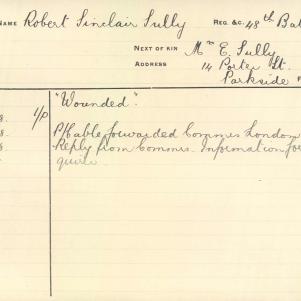 NAME Robert Sinclair Sully REG &C. 48th Bat
NEXT OF KIN Mrs E. Sully
ADDRESS 14 Porter St.
Parkside
"Wounded".
8. 1/P
8 P/Cable forwarded Commes London
Reply from Commes. Information for